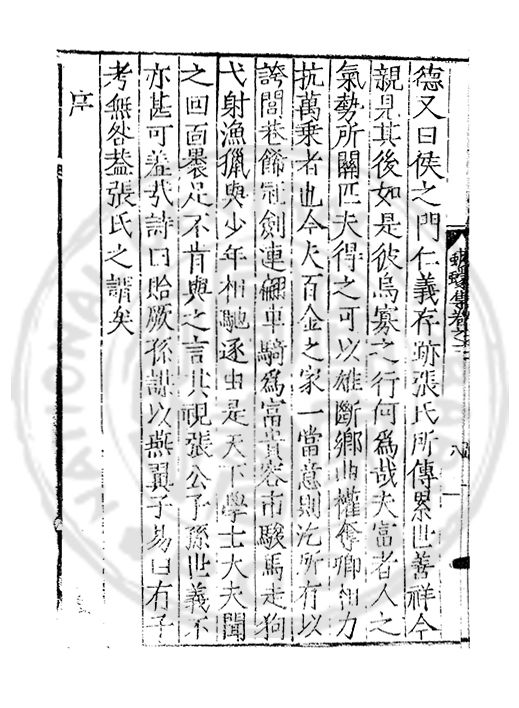 德又曰侯之門仁義存跡張氏所傳累世善祥今
親見其後如是彼烏寡之行何爲哉夫富者人之
氣勢所關匹夫得之可以雄斷鄉曲權奪卿相力
抗萬乘者也今夫百金之家一當意則訖所有以
誇閭巷飾冠劍連翩車騎爲富貴容市駿馬走狗
弋射漁獵與少年相馳逐由是天下學士大夫聞
之回面裹足不肯與之言其視張公子孫世義不
亦甚可羞哉詩曰貽厥孫謀以燕翼子易曰有子
考無咎葢張氏之謂矣
序
集卷之二
八
NATIONAL